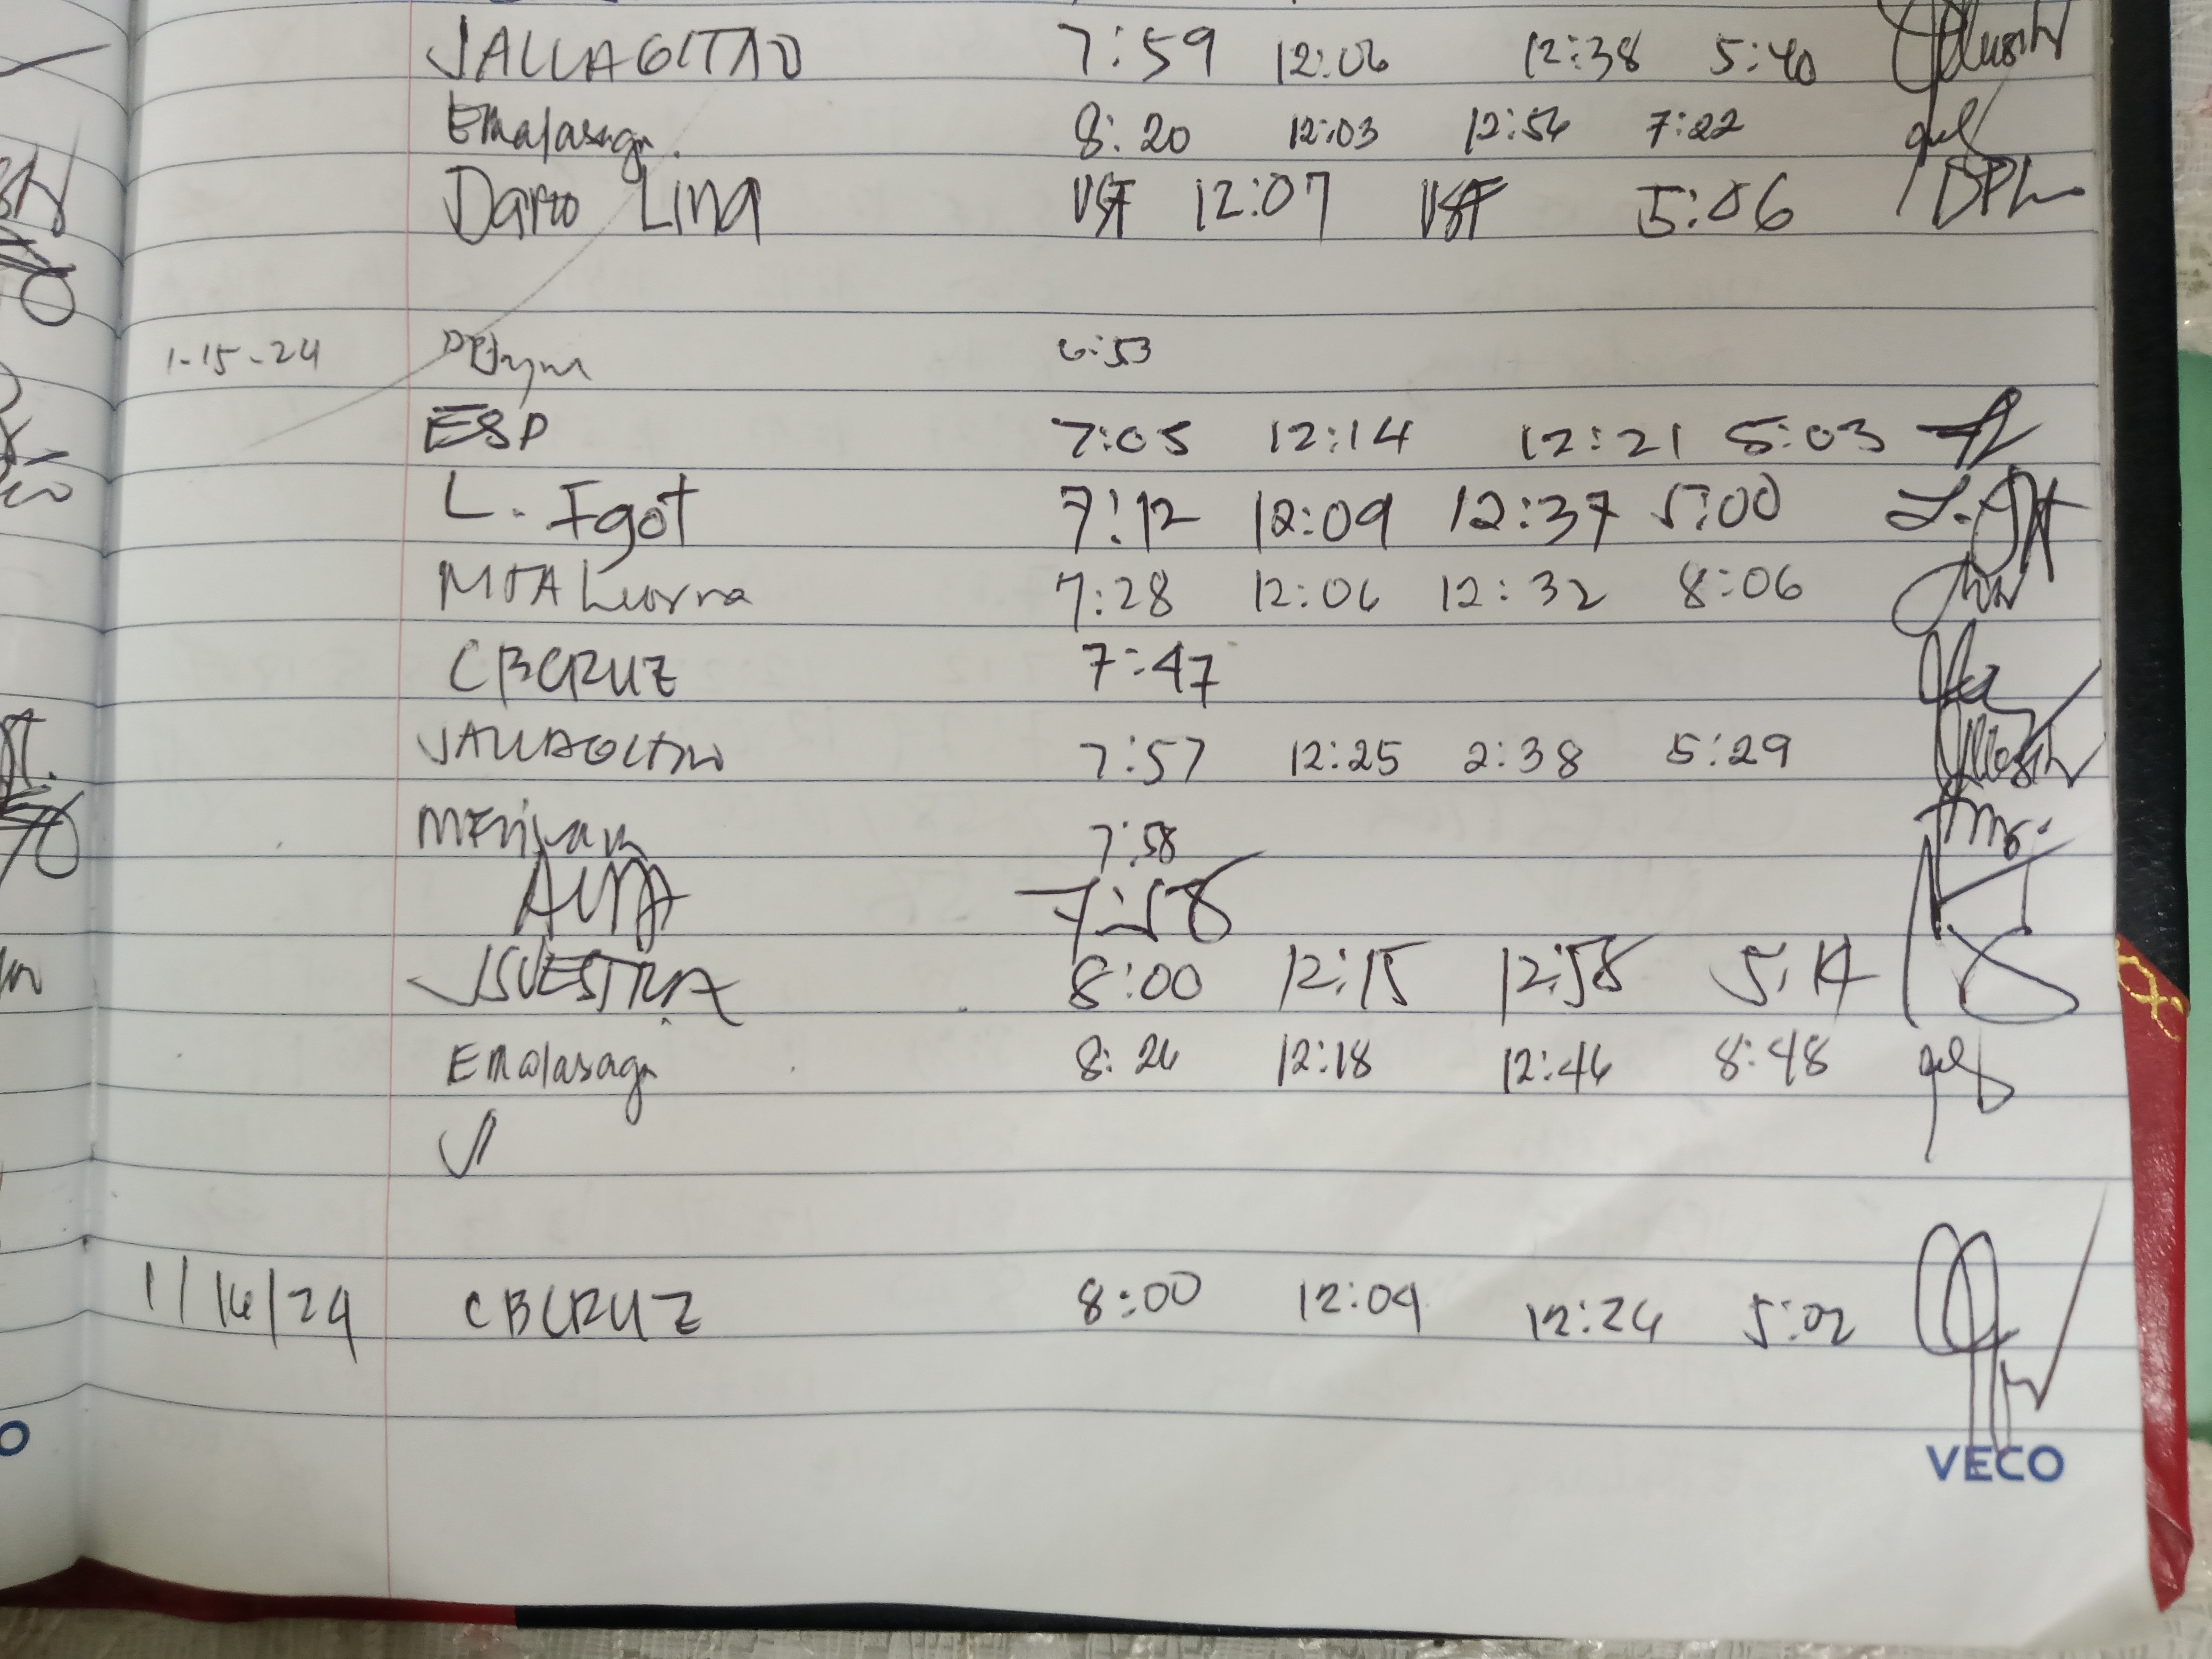 JALLAGUITAO 7:59 12:06 12:38 5:40
Emalasaga. 8:20 12:03 12:56 7:22
Dario Lina VSF 12:07 VSF 5:06 DPL
1-15-24 6:53
ESP 7:05 12:14 12:21 5:03
L. Igot 7:12 12:09 12:37 5:00
MJA 7:28 12:06 12:32 8:06
CBCRUZ 7:47
7:57 12:25 2:38 5:29
7:58
7:58
JSVESTRA 8:00 12:15 12:58 5:14
Emalasaga 8:26 12:18 12:46 8:48
1/16/24 CBCRUZ 8:00 12:04 12:24 5:02
VECO